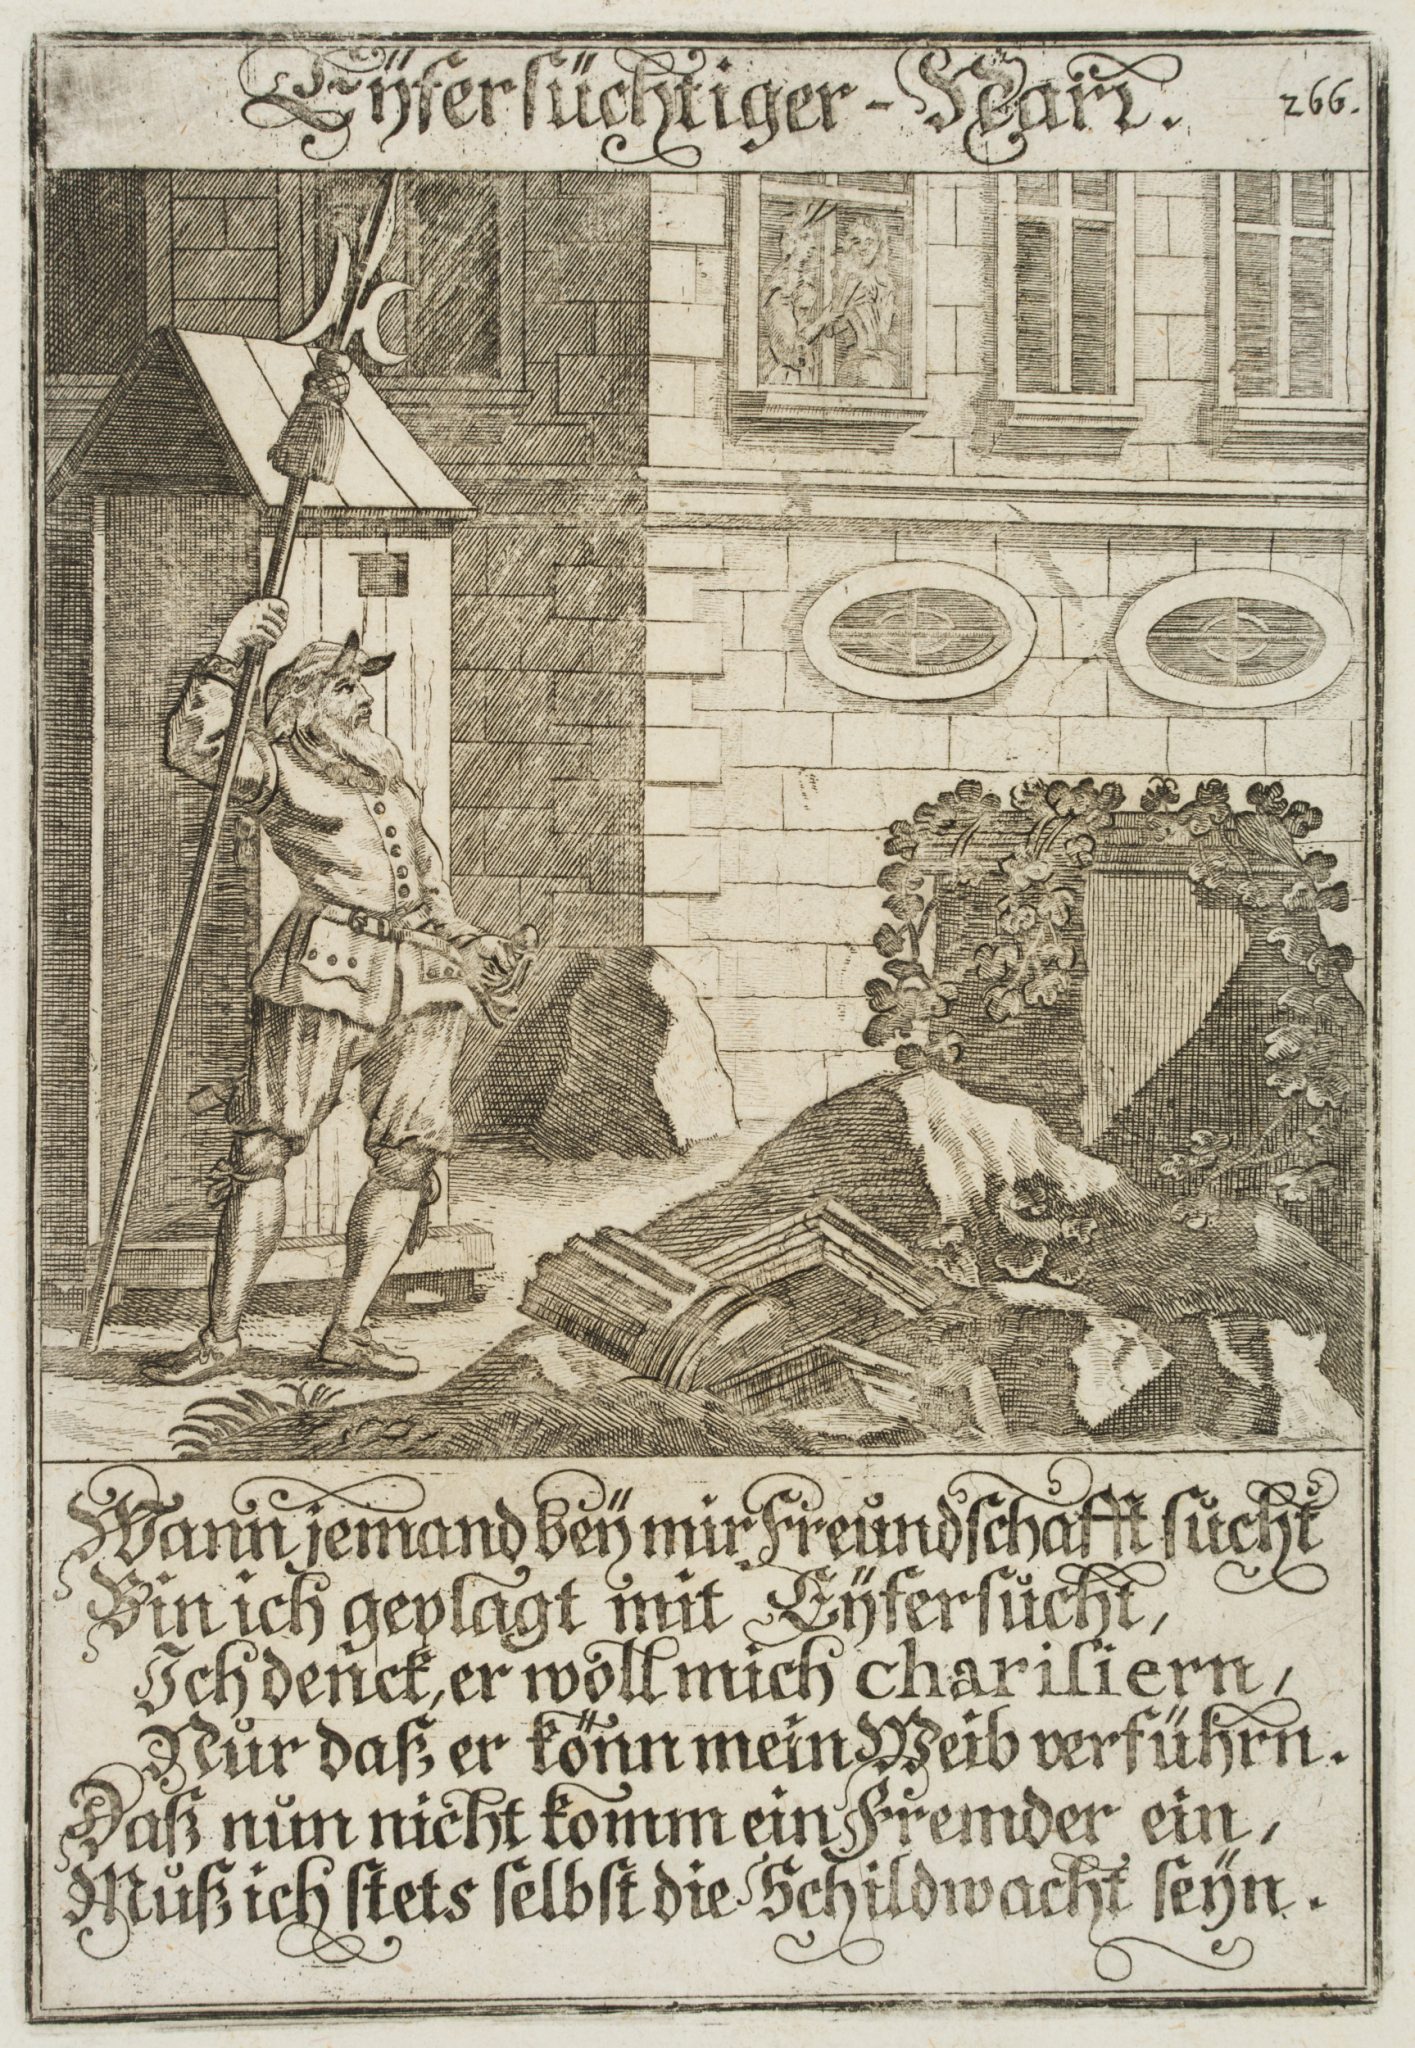 Eÿfersüchtiger-Narr.
266.
Wann jemand beÿ mir Freundschafft sucht
Bin ich geplagt mit Eÿfersucht,
Ich denck, er wöll mich charisiern,
Nur daß er könn mein Weib verführn.
Daß nun nicht komm ein Fremder ein,
Muß ich stets selbst die Schildwacht seÿn.